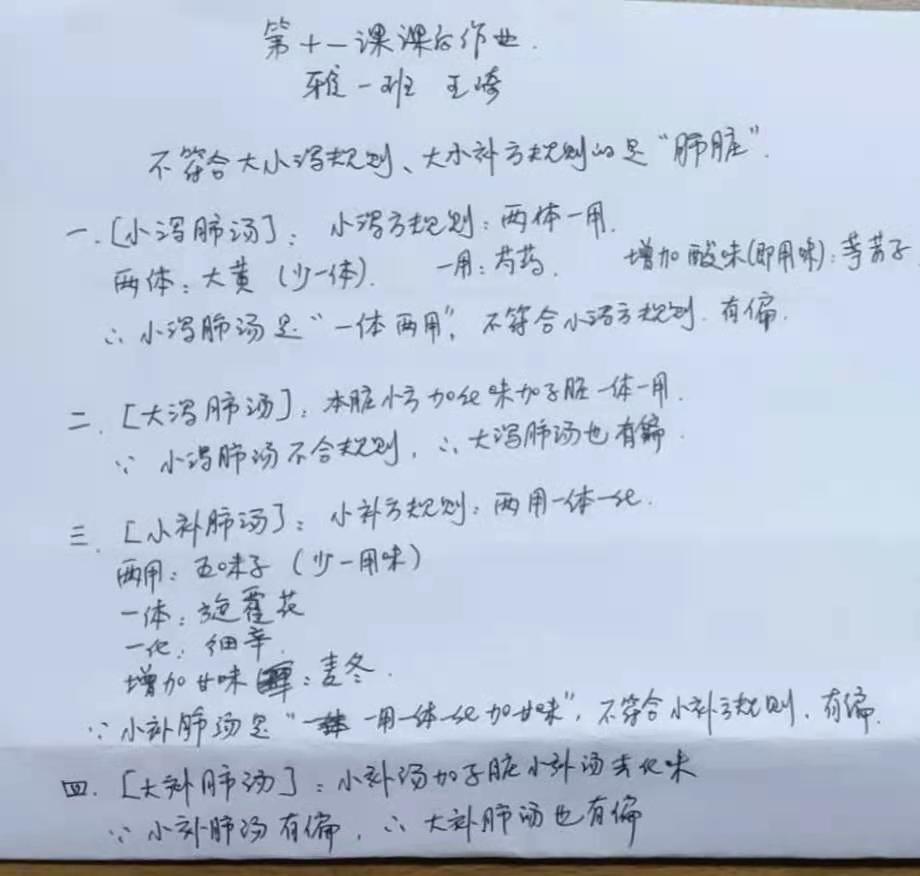 第十一课课后作业.
雅一班 王崎
不符合大小泻规则、大小补方规则的是“肺脏”.
一.[小泻肺汤]: 小泻方规则:两体一用.
两体:大黄(少一体). 一用:芍药. 增加酸味(即用味):葶苈子
∴小泻肺汤是“一体两用”,不符合小泻方规则.有偏.
二.[大泻肺汤]:本脏小方加化味加子脏一体一用.
∵小泻肺汤不合规则,∴大泻肺汤也有偏.
三.[小补肺汤]:小补方规则:两用一体一化.
两用:五味子(少一用味)
一体:旋覆花
一化:细辛.
增加甘味:麦冬.
∵小补肺汤是“一用一体一化加甘味”,不符合小补方规则.有偏.
四.[大补肺汤]:小补汤加子脏小补汤去化味
∵小补肺汤有偏,∴大补肺汤也有偏